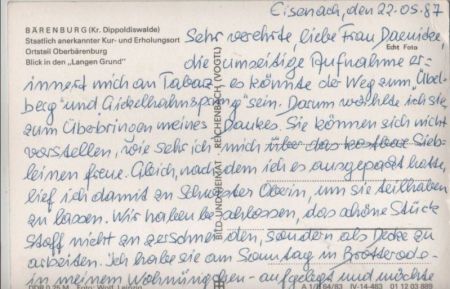 Eisenach, den 22.05.87
BÄRENBURG (Kr. Dippoldiswalde)
Staatlich anerkannter Kur- und Erholungsort
Ortsteil Oberbärenburg
Blick in den „Langen Grund"
Echt Foto
BILD UND HEIMAT REICHENBACH (VOGTL)
Sehr verehrte, liebe Frau Daenicke,
die umseitige Aufnahme er-
innert mich an Tabarz - es könnte der Weg zum „Übel-
berg" und Gickelhahnsprung" sein. Darum wählte ich sie
zum Überbringen meines Dankes. Sie können sich nicht
vorstellen, wie sehr ich mich über das kostbare Sieb-
leinen freue. Gleich, nachdem ich es ausgepackt hatte,
lief ich damit zu Schwester Oberin, um sie teilhaben
zu lassen. Wir haben beschlossen, das schöne Stück
Stoff nicht zu zerschneiden, sondern als Decke zu
arbeiten. Ich habe sie am Sonntag in Brotterode -
in meinem Wohnüngchen - aufgelegt und möchte
IV-14-483 01 12 03 889